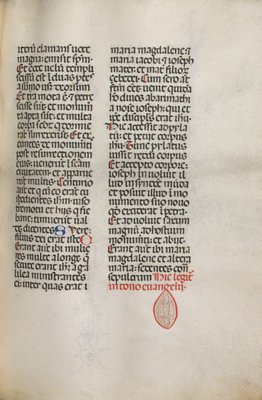 iterū clamans uoce
magna: emisit spm̄.
Et ecce uelū templi
scissū est ī duas p̄tes
a sūmo usq3 deorsum
Et tr̄a mota ē: & petre
scisse sūt: et monumē
ta apta sūt: et multa
corpa scōr& q̄ dormie
rāt surrexer̄ūt. Et exe
untes de monumētis
post resurrectionem
eius uenerūt ī scām
ciuitatē: et apparue
rūt multis. Centurio
aūt et qui cū eo erāt
custodientes ihm: uiso
terremotu et his q̄ fie
bant: timuerūt ual
de: dicentes. Uere
filius dei erat iste.
Erant aūt ibi mulie
res multe a longe q̄
secute erant ihm a ga
lilea ministrantes
ei: inter quas erat
maria magdalene: &
maria iacobi & ioseph
mater: et mat̄ filior̄
zebedei. Cum sero aūt
factū eēt: uenit quidā
hō diues abarimathi
a noīe ioseph: qui et
ip̄e discipls̄ erat ihu.
Hic accessit ad pyla
tū: et petiit corpus
ihu. Tunc pylatus
iussit reddi corpus
Et accepto corpore:
ioseph īuoluit il
lud ī syndone mūda
et posuit illud ī mo
numēto suo nouo
q̄d exciderat ī petra.
Et aduoluit saxum
magnū ad hostium
monumēti: et abiit
Erant aūt ibi maria
magdalene et altera
maria: sedentes con̄
sepulcrum. Hic legit̄
in tono euangelij.